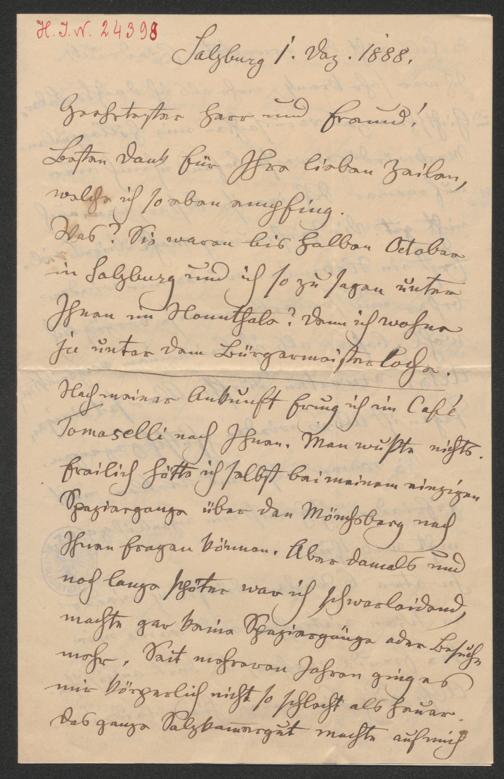 H. I. N. 24398
Salzburg 1. Dez. 1888.
Geehrtester Herr und Freund!
Besten Dank für Ihre lieben Zeilen,
welche ich soeben empfing.
Was? Sie waren bis halben October
in Salzburg und ich so zu sagen unter
Ihnen im Nonnthale? Denn ich wohne
ja unter dem Bürgermeisterloche.
Nach meiner Ankunft frug ich im Café
Tomaselli nach Ihnen. Man wußte nichts.
Freilich hätte ich selbst bei meinem einzigen
Spaziergange über den Mönchsberg nach
Ihnen fragen können. Aber damals und
noch lange später war ich schwerleidend,
machte gar keine Spaziergänge oder Besuche
mehr. Seit mehreren Jahren ging es
mir körperlich nicht so schlecht als heuer.
Das ganze Salzkammergut machte auf mich